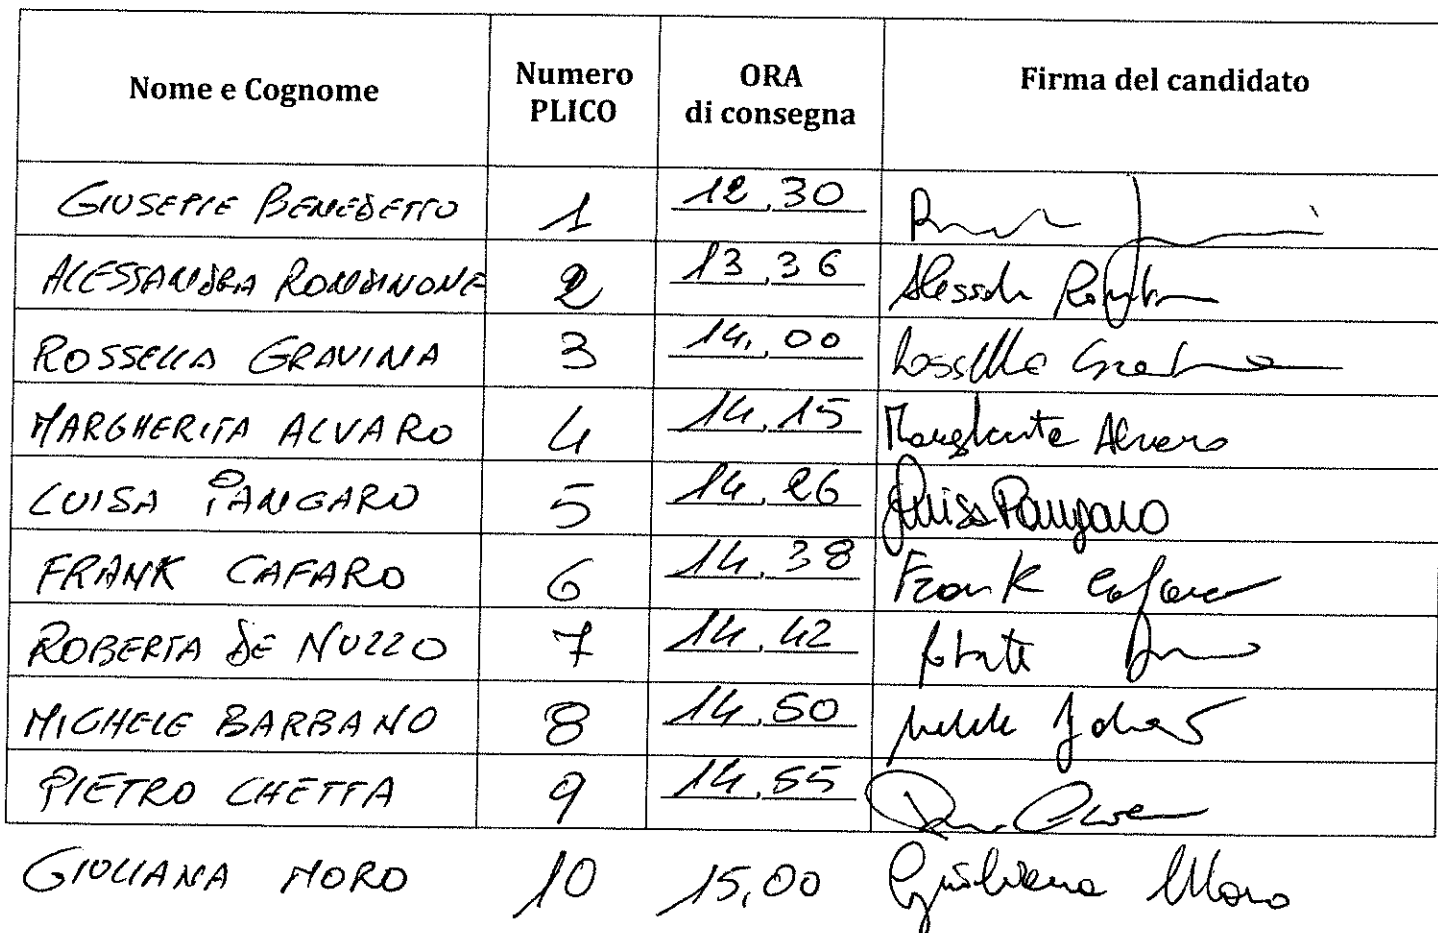 Nome e Cognome Numero PLICO ORA di consegna Firma del candidato
GIUSEPPE BENEDETTO 1 12,30
ALESSANDRA RONDINONE 2 13,36
ROSSELLA GRAVINA 3 14,00 Rossella
MARGHERITA ALVARO 4 14,15 Margherita Alvaro
LUISA PANGARO 5 14,26 Luisa Pangaro
FRANK CAFARO 6 14,38 Frank Cafaro
ROBERTA DE NUZZO 7 14,42
MICHELE BARBANO 8 14,50
PIETRO CHETTA 9 14,55
GIULIANA MORO 10 15,00 Giuliana Moro